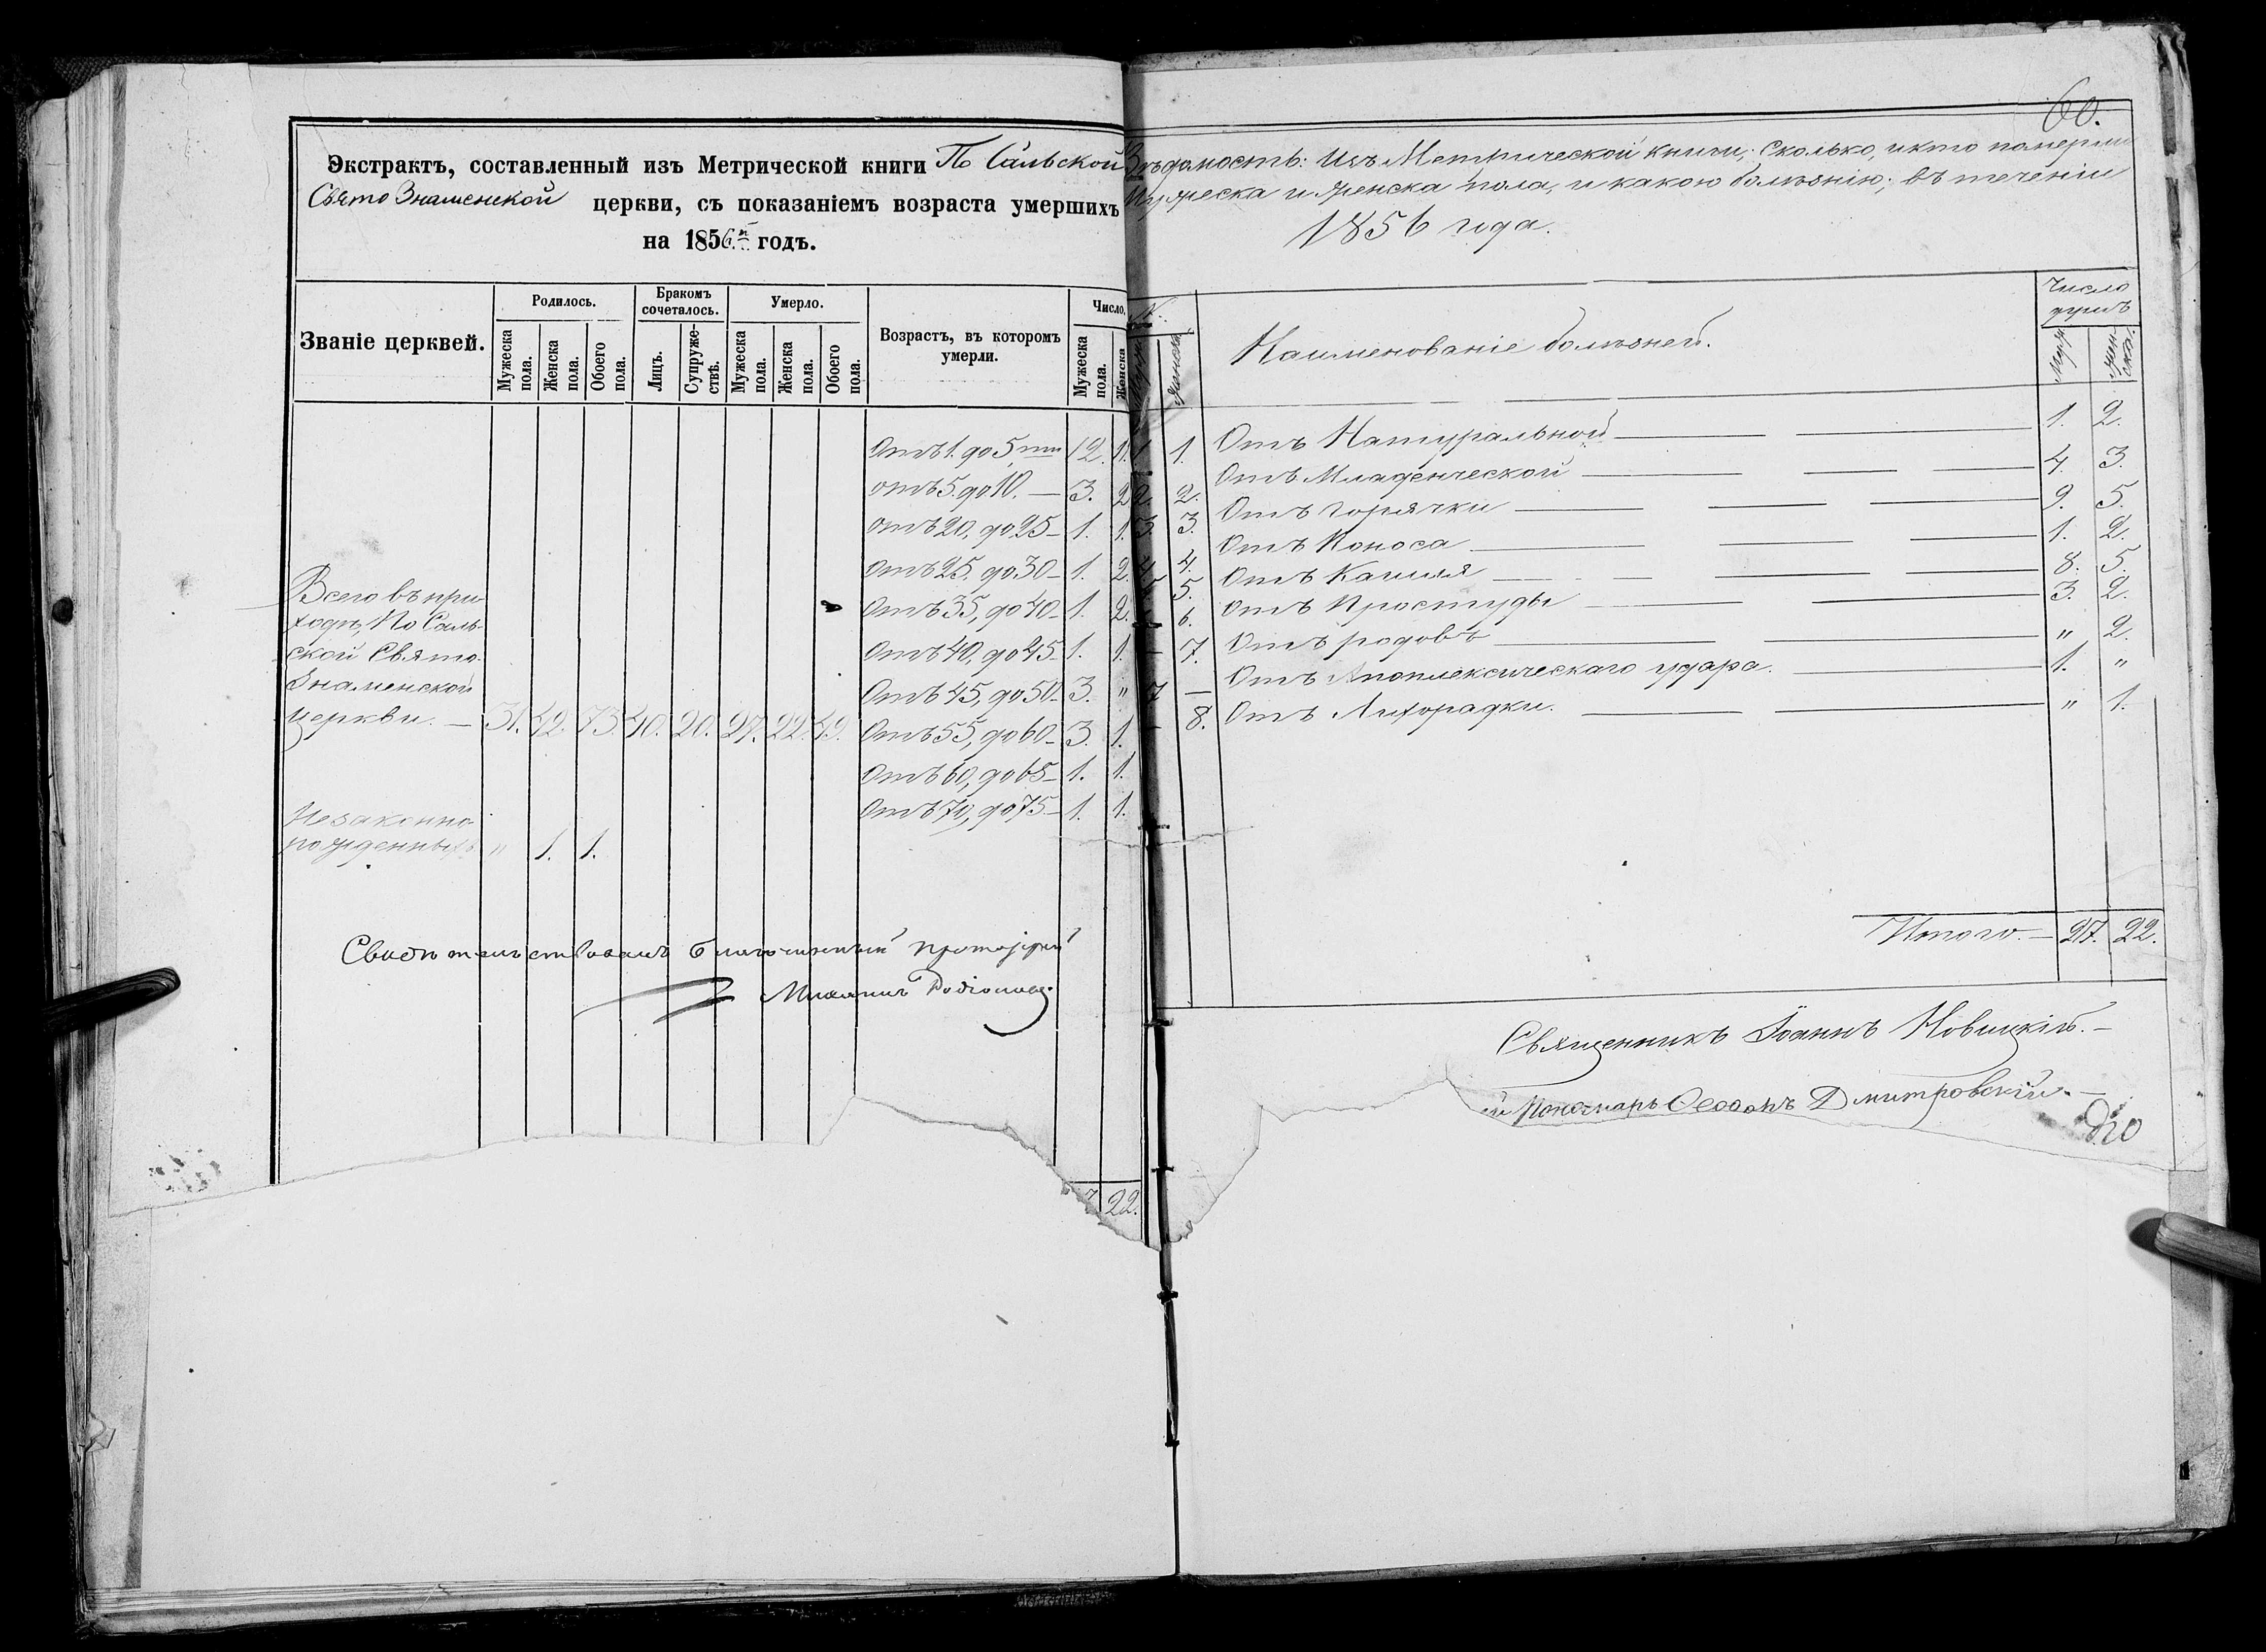 Экстрактъ, составленный изъ Метрической книги По Сальской
Свято Знаменской церкви, съ показаніемъ возраста умершихъ
на 1856й годъ.
Званіе церквей.
Родилось.
Бракомъ сочеталось.
Умерло.
Возрастъ, въ которомъ умерли.
Число.
Мужеска пола.
Женска пола.
Обоего пола.
Лицъ.
Супружествѣ.
Мужеска пола.
Женска пола.
Обоего пола.
Мужеска пола.
Женска
Отъ 1. до 5, ти 12. 11.
отъ 5. до 10. — 3. 2
отъ 20, до 25 — 1. 1.
Отъ 25. до 30 — 1. 2.
Отъ 35, до 40 — 1. 2.
Отъ 40, до 45 — 1. 1.
Отъ 45, до 50 — 3. "
Отъ 55, до 60 — 3. 1.
Отъ 60, до 65 — 1. 1.
Отъ 70, до 75 — 1. 1.
Всего въ при-
ходѣ, По Саль-
ской Свято-
Знаменской
церкви. — 31. 42. 73. 40. 20. 27. 22. 49.
Незаконно-
рожденныхъ " 1. 1.
Свидѣтельствовалъ благочинный протоіерей
Михаилъ Родіоновъ.
7 22.
60.
Вѣдомость: Изъ Метрической книги; Сколько, и кто померли
Мужеска и Женска пола, и какою болѣзнію; въ теченіи
1856 года.
№.
Женска
Наименованіе болѣзней.
Число душъ
Муж.
Женска.
1 1. Отъ Натуральной — 1. 2.
2. 2. Отъ Младенческой — 4. 3.
3. 3. Отъ Горячки — 9. 5.
4. 4. Отъ Поноса — 1. 2.
5. 5. Отъ Кашля — 8. 5.
6. Отъ Простуды — 3. 2.
— 7. Отъ родовъ — " 2.
7 — Отъ Апоплексическаго удара. — 1. "
— 8. Отъ Лихорадки. — " 1.
Итого. — 27. 22.
Священникъ Іоаннъ Новицкій. —
й Пономарь Ѳеоѳанъ Дмитровскій. —